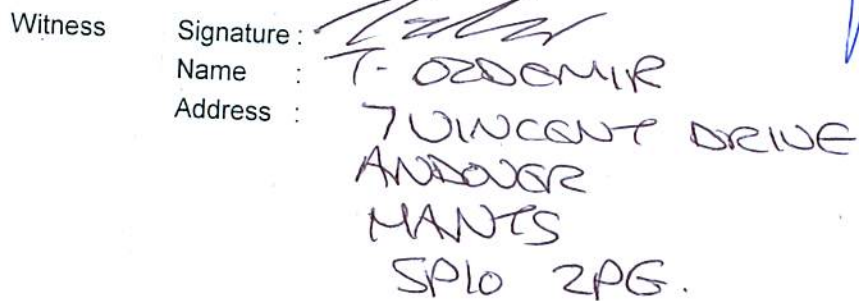 Witness Signature :
Name : T- OZDEMIR
Address : 7 VINCENT DRIVE
ANDOVER
HANTS
SP10 2PG.